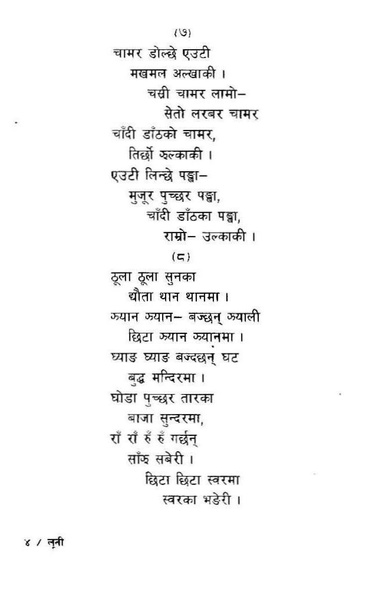 (७)
चामर डोल्छे एउटी
मखमल अल्खाकी ।
चम्री चामर लामो–
सेतो लरबर चामर
चाँदी डाँठको चामर,
तिर्छो झल्काकी ।
एउटी लिन्छे पङ्खा–
मुजूर पुच्छर पङ्खा,
चाँदी डाँठका पङ्खा,
राम्रो– उल्काकी ।
(८)
ठूला ठूला सुनका
द्यौता थान थानमा ।
झ्यान झ्यान– बज्छन् झ्याली
छिटा झ्यान झ्यानमा ।
घ्याङ घ्याङ बज्दछन् घट
बुद्ध मन्दिरमा ।
घोडा पुच्छर तारका
बाजा सुन्दरमा,
राँ राँ हँ हँ गर्छन्
साँझ सबेरी ।
छिटा छिटा स्वरमा
स्वरका भङेरी ।
४ / लूनी